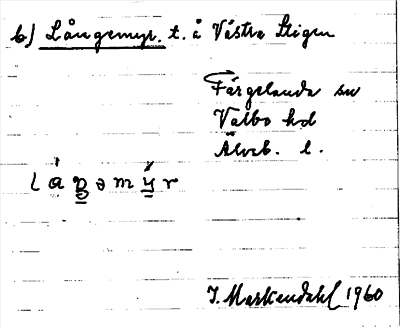 b) Långemyr. t. å Västra Stigen
Färgelanda sn
Valbo hd
Älvsb. l.
J. Markendahl 1960